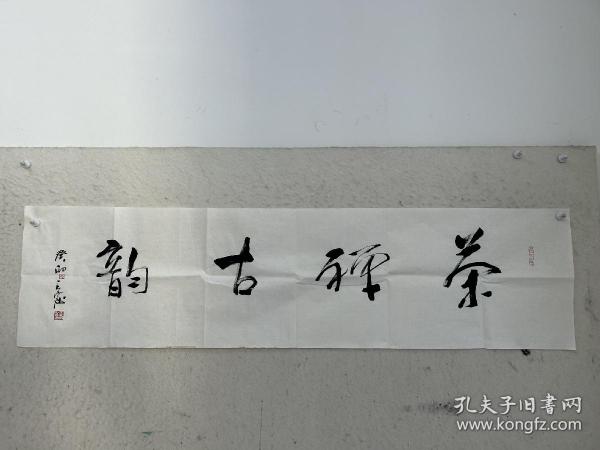 茶禅古韵
癸卯
孔夫子旧书网
www.kongfz.com